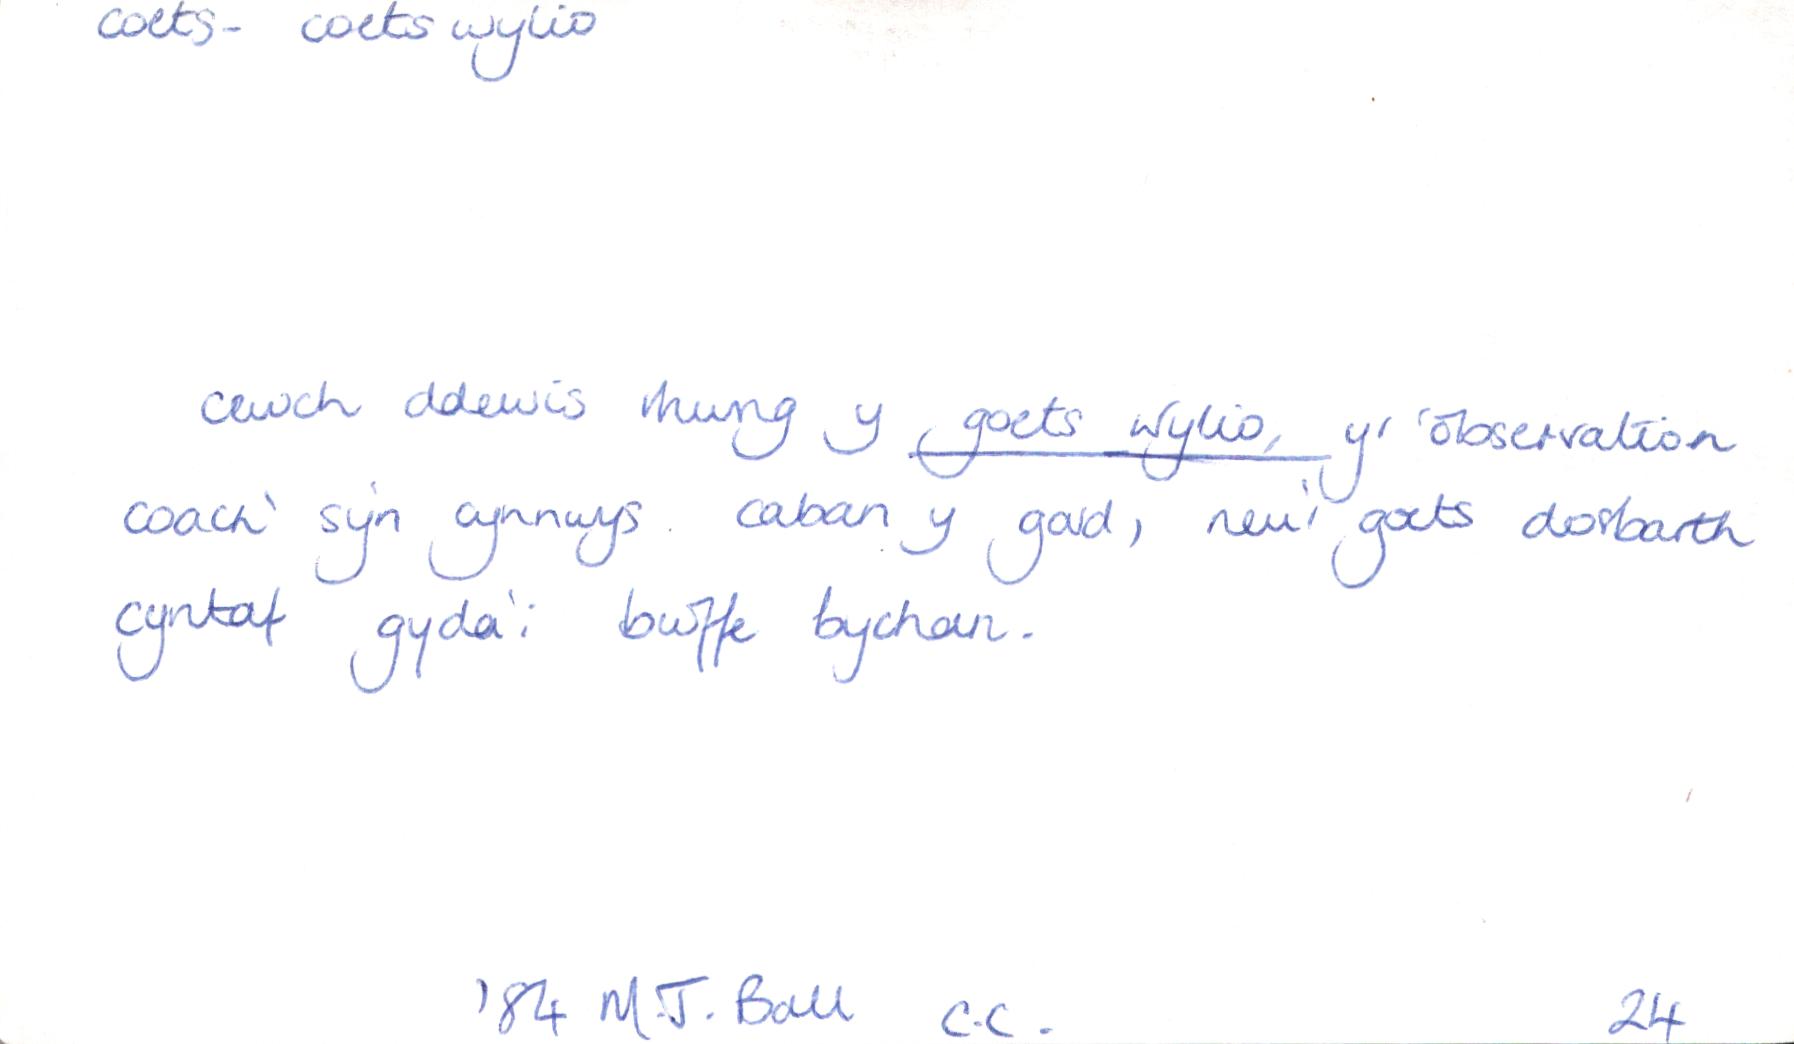 coets- coets wylio
cewch ddewis rhwng y goets wylio, yr 'observation
coach' sy'n cynnwys caban y gard, neu'r goets dosbarth
cyntaf gyda'i bwffe bychan.
'84 M.J. Ball c.c. 24